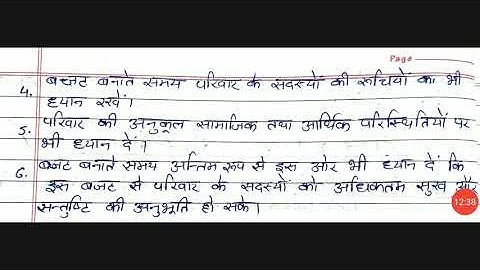 Page
4. बजट बनाते समय परिवार के सदस्यों की रूचियों का भी
ध्यान रखें।
5. परिवार की अनुकूल सामाजिक तथा आर्थिक परिस्थितियों पर
भी ध्यान दें।
6. बजट बनाते समय अन्तिम रूप से इस ओर भी ध्यान दें कि
इस बजट से परिवार के सदस्यों को अधिकतम सुख और
सन्तुष्टि की अनुभूति हो सके।
12:38